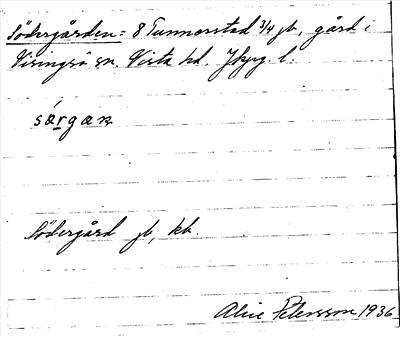 Södergården: 8 Tunnorstad 3/4 jb, gård i
Visingsö sn. Vista hd. Jkpg. l.
sǽrgan
Södergård jb, kb.
Alice Petersson 1936